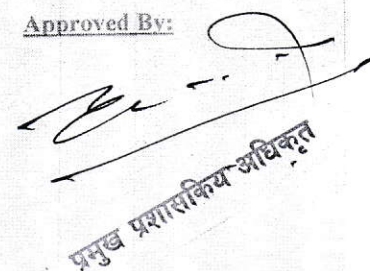 Approved By:
प्रमुख प्रशासकिय अधिकृत